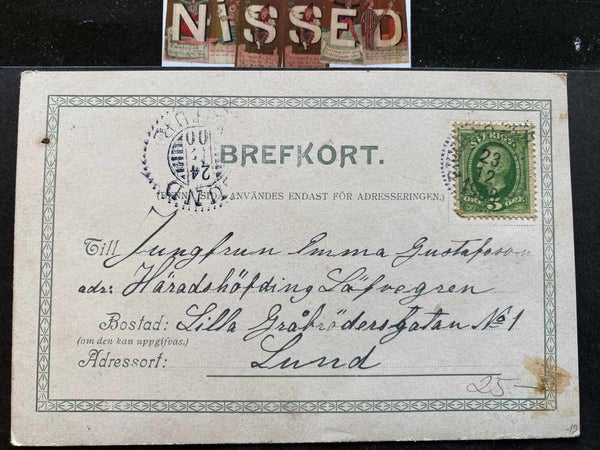 NISSED
BREFKORT.
(DENNA SIDA ANVÄNDES ENDAST FÖR ADRESSERINGEN.)
SVERIGE
5 ÖRE
23
12
LUND
24
00
Till Jungfrun Emma Gustafsson
adr: Häradshöfding Löfvegren
Bostad: Lilla Gråbrödersgatan No 1
(om den kan uppgifvas.)
Adressort: Lund
25-